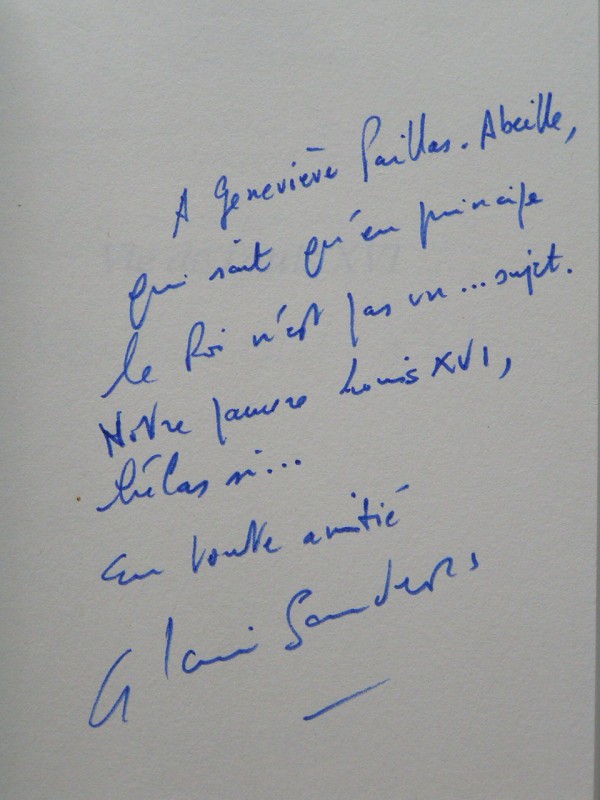 A Geneviève Paillas-Abeille,
qui sait qu'en principe
le Roi n'est pas un... sujet.
Notre pauvre Louis XVI,
hélas si...
En toute amitié
Alain Sanders